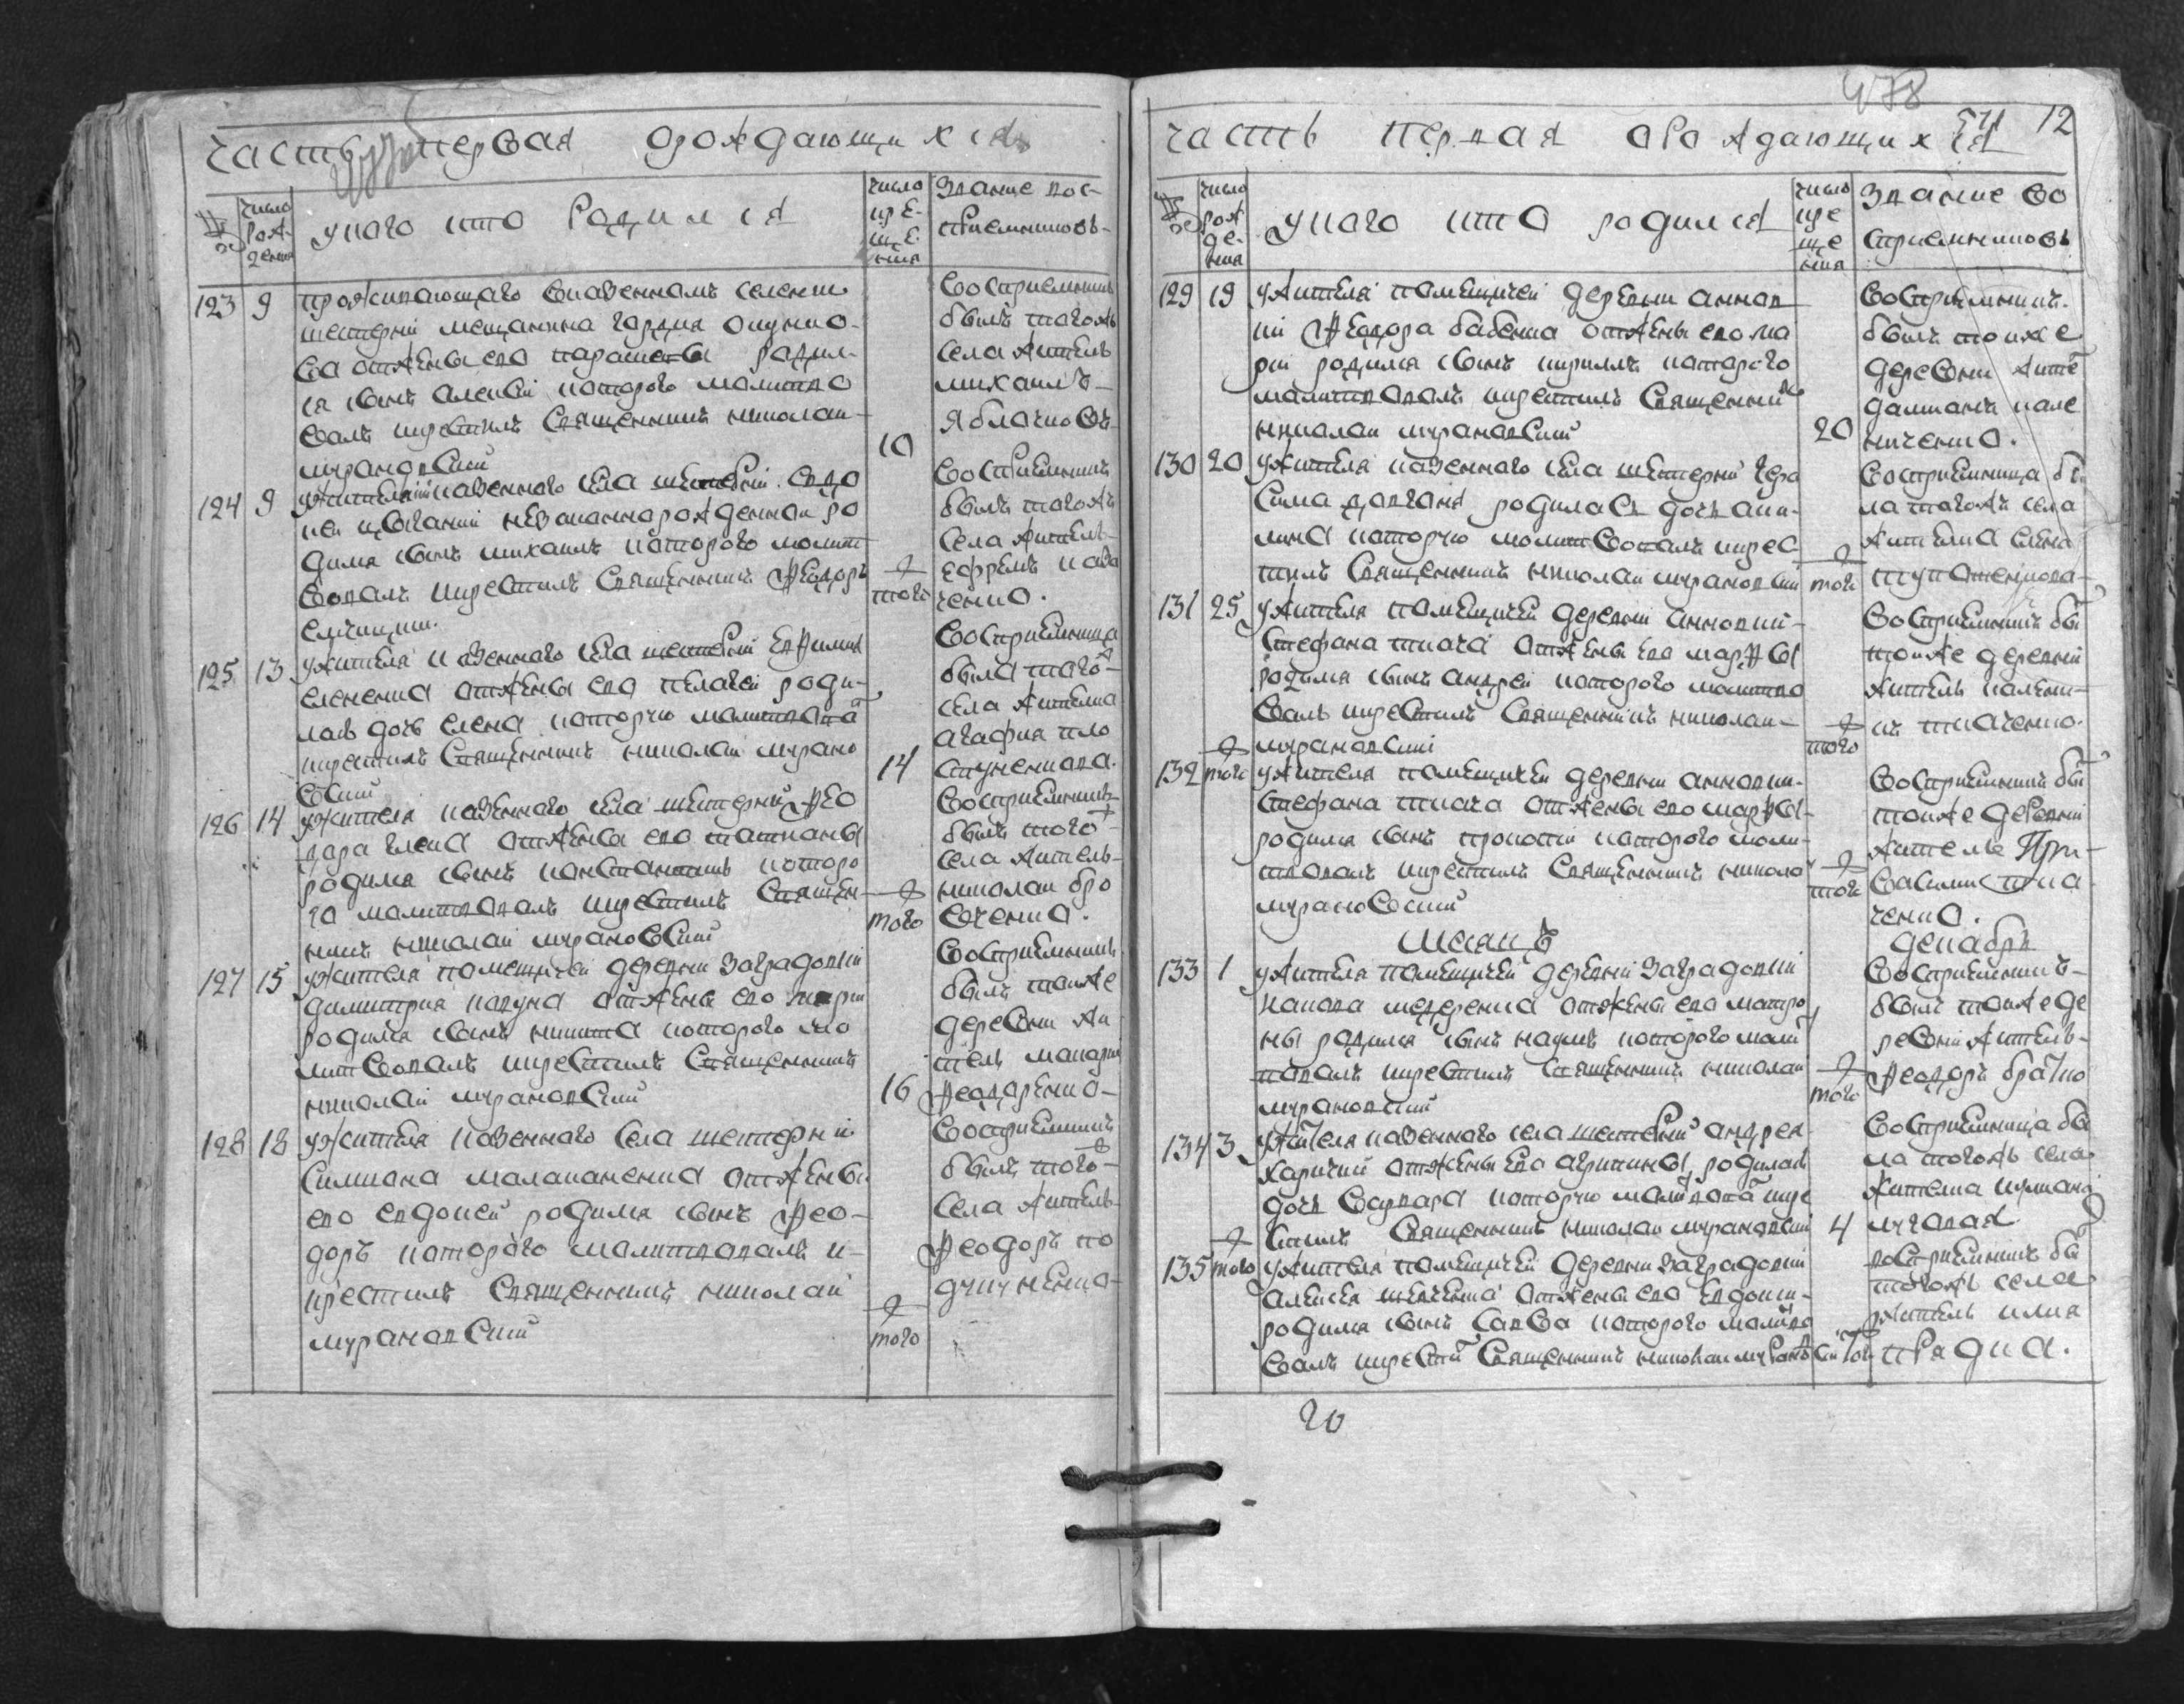 часть первая о рождающихся
№
число рож-дения
у кого кто родился
число кре-ще-ния
звание вос-приемниковъ
123 9 проживающаго вказенномъ селении
шептерки мещанина
ва отжены его параскевы родил-
ся сынъ алексей которого молитво
валъ икрестилъ Священникъ николаи
мурановский
10
Восприемникъ
былъ тогожъ
села житель
михаилъ
яблочковъ
124 9 ужителя казенного села шептерки
незаконнорожденной ро
дился сынъ михаилъ которого молит
вовалъ икрестилъ Священникъ феодоръ
того
Восприемникъ
былъ тогожъ
села житель
ефремъ
ченко.
125 13 ужителя казенного села шептерки
елененка отжены его пелагеи роди-
лась дочь елена которую молитвова
икрестилъ Священникъ николаи мурано
вский
14
Восприемница
была того ж
села жителка
агафия пло
скуненкова.
126 14 ужителя казенного села шептерки фео
дора отжены его татианы
родился сынъ константинъ которо
го молитвовалъ икрестилъ Священ-
никъ николаи мурановский
того
Восприемникъ
былъ того ж
села житель
николаи бро
вченко.
127 15 ужителя помещичей деревни Заградовки
димитрия ковуна отжены его марии
родился сынъ никита которого мо
литвовалъ икрестилъ Священникъ
николаи мурановский
16
Восприемникъ
былъ тоиже
деревни жи-
тель макарии
феодоренко
128 18 ужителя казенного села шептерки
Симиона малашненка отжены
его евдокеи родился сынъ фео-
доръ которого молитвовалъ и-
крестилъ Священникъ николаи
мурановский
того
Восприемникъ
былъ того ж
села житель
феодоръ ко

478
12
часть первая орождающихся
№
число рож-де-ния
у кого кто родился
число кре-ще-ния
звание во
сприемниковъ
129 19 ужителя помещичей деревни аннов
ки феодора бабенка отжены его ма
рии родился сынъ кириллъ которого
молитвовалъ икрестилъ Священникъ
николаи мурановский
20
Восприемникъ
былъ тоиже
деревни жите
дамианъ кале
ниченко.
130 20 ужителя казенного села шептерки гера
сима довганя родилась дочь аки-
лина которую молитвовалъ икрес
тилъ Священникъ николаи мурановский
того
Восприемница бы
ла тогожъ села
жителка елена
131 25 ужителя помещичей деревни анновки
Стефана ткача отжены его марфы
родился сынъ андрей которого молитво
валъ икрестилъ Священникъ николаи
мурановский
того
Восприемникъ бы
тоиже деревни
житель калени-
къ ткаченко.
132 того ужителя помещичей деревни анновки
Стефана ткача отжены его марфы
родился сынъ прокопий которого моли-
твовалъ икрестилъ Священникъ никола
мурановский
того
Восприемникъ бы
тоиже деревни
житель
василий тка
ченко.
Месяцъ декабрь
133 1 ужителя помещичей деревни Заградовки
отжены его матро
ны родился сынъ наумъ которого моли
твовалъ икрестилъ Священникъ николаи
мурановский
того
Восприемникъ
былъ тоиже де
ревни житель
феодоръ братко
134 3 ужителя казенного села шептерки андрея
отжены его агрипины родилась
дочь варвара которую молитвова икре
стилъ Священникъ николаи мурановский
4
Восприемница бы
ла тогожъ села
жителка иулиана
мугавая
135 того ужителя помещичей деревни Заградовки
алексея отжены его евдокии
родился сынъ савва которого молитво
валъ икрести Священникъ николаи мурановский
того
восприемникъ бы
тогожъ села
житель илия
прядка.
20